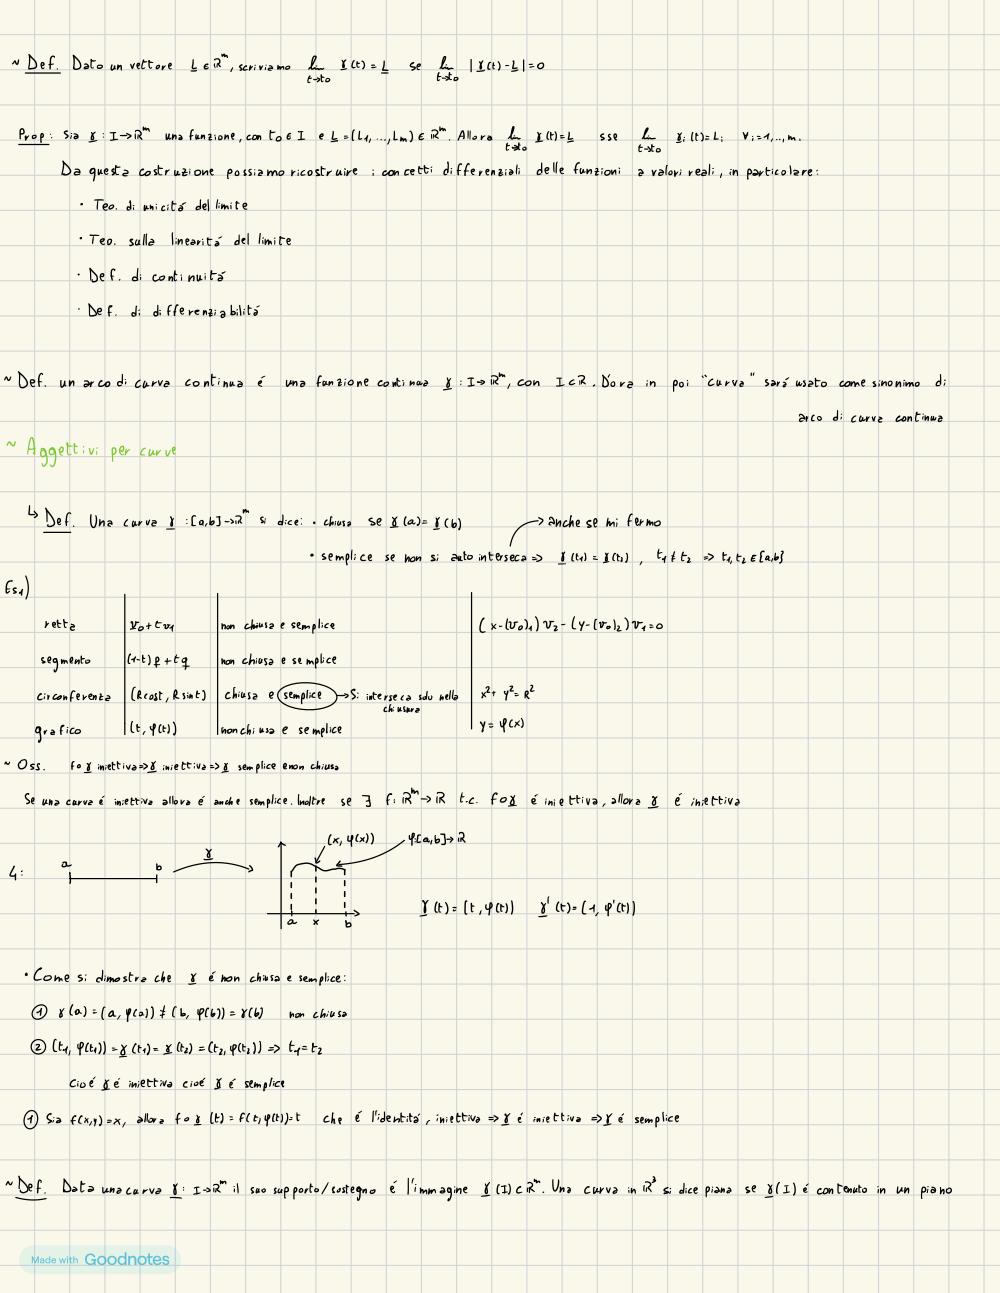 ~ Def. Dato un vettore L ∈ ℝᵐ, scriviamo lim t→t₀ γ(t) = L se lim t→t₀ |γ(t)-L|=0
Prop: Sia γ: I→ℝᵐ una funzione, con t₀ ∈ I e L=(L₁,...,Lₘ) ∈ ℝᵐ. Allora lim t→t₀ γ(t)=L sse lim t→t₀ γᵢ(t)=Lᵢ ∀i=1,..,m.
Da questa costruzione possiamo ricostruire i concetti differenziali delle funzioni a valori reali, in particolare:
· Teo. di unicitá del limite
· Teo. sulla linearitá del limite
· Def. di continuitá
· Def. di differenziabilitá
~ Def. un arco di curva continua é una funzione continua γ: I→ℝᵐ, con I⊂ℝ. D'ora in poi "curva" sará usato come sinonimo di
arco di curva continua
~ Aggettivi per curve
↳ Def. Una curva γ:[a,b]→ℝᵐ si dice: · chiusa se γ(a)=γ(b)
anche se mi fermo
· semplice se non si auto interseca => γ(t₁) = γ(t₂), t₁≠t₂ => t₁,t₂∈{a,b}
Es1)
retta v₀+tv₁ non chiusa e semplice (x-(v₀)₁)v₂-(y-(v₀)₂)v₁=0
segmento (1-t)p+tq non chiusa e semplice
circonferenza (Rcost, Rsint) chiusa e semplice → Si interseca solo nella chiusura x²+y²=R²
grafico (t, φ(t)) non chiusa e semplice y=φ(x)
~ Oss. f∘γ iniettiva=>γ iniettiva=>γ semplice e non chiusa
Se una curva é iniettiva allora é anche semplice. Inoltre se ∃ f: ℝᵐ→ℝ t.c. f∘γ é iniettiva, allora γ é iniettiva
(x, φ(x)) φ:[a,b]→ℝ
4: a b γ
γ(t)=(t,φ(t)) γ'(t)=(1,φ'(t))
a x b
· Come si dimostra che γ é non chiusa e semplice:
① γ(a)=(a, φ(a)) ≠ (b, φ(b)) = γ(b) non chiusa
② (t₁, φ(t₁))=γ(t₁)=γ(t₂)=(t₂, φ(t₂)) => t₁=t₂
Cioé γ é iniettiva cioé γ é semplice
① Sia f(x,y)=x, allora f∘γ(t)=f(t,φ(t))=t che é l'identitá, iniettiva => γ é iniettiva => γ é semplice
~ Def. Data una curva γ: I→ℝᵐ il suo supporto/sostegno é l'immagine γ(I)⊂ℝᵐ. Una curva in ℝ³ si dice piana se γ(I) é contenuto in un piano
Made with Goodnotes